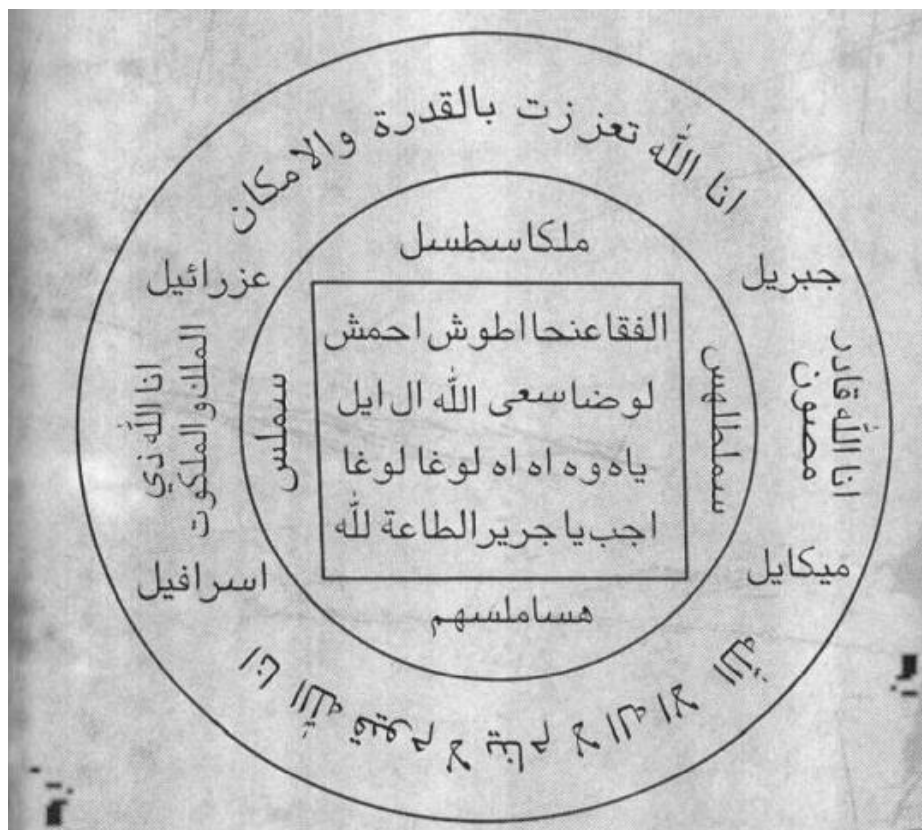 انا الله تعززت بالقدرة والامكان
جبريل
انا الله قادر
مصون
ميكايل
انا الله قيوم لا ينام لا اله الا الله
اسرافيل
انا الله ذي
الملك والملكوت
عزرائيل
ملكاسطسل
سملطلهس
هساملسهم
سملس
الفقاعنحا اطوش احمش
لوضاسعى الله ال ايل
ياه وه اه اه لوغا لوغا
اجب يا جرير الطاعة لله